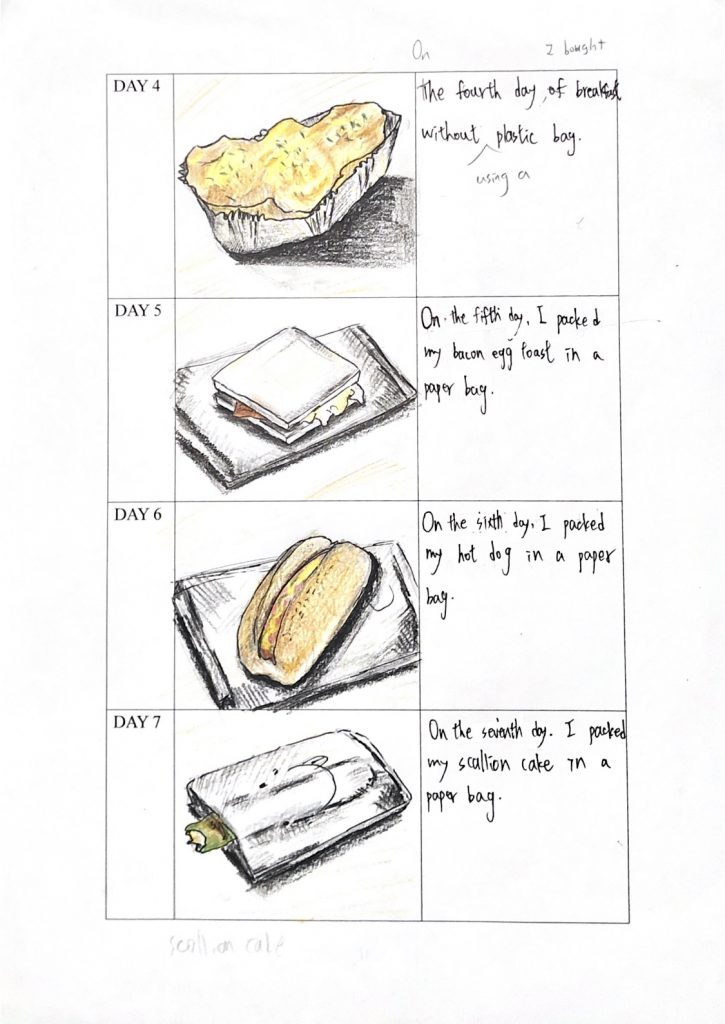 On I bought
DAY 4
The fourth day, of breakfast
without plastic bag.
using a
DAY 5
On the fifth day, I packed
my bacon egg toast in a
paper bag.
DAY 6
On the sixth day, I packed
my hot dog in a paper
bag.
DAY 7
On the seventh day. I packed
my scallion cake in a
paper bag.
scallion cake